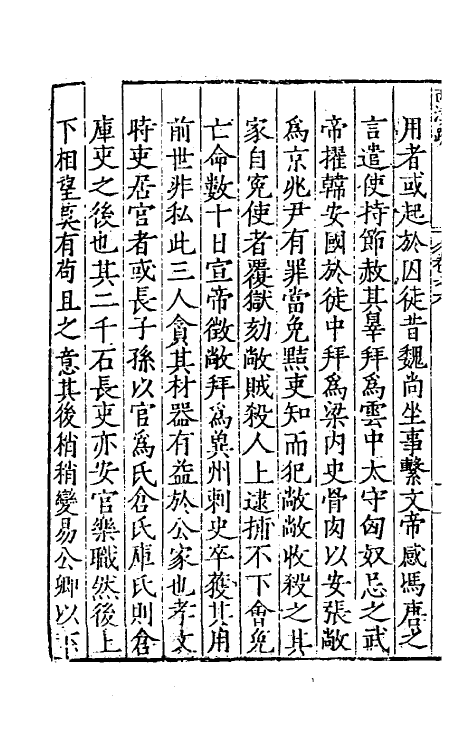 用者或起於囚徒昔魏尚坐事繫文帝感馮唐之
言遣使持節赦其辠拜爲雲中太守匈奴忌之武
帝擢韓安國於徒中拜爲梁内史骨肉以安張敞
爲京兆尹有罪當免黠吏知而犯敞敞收殺之其
家自寃使者覆獄劾敞賊殺人上逮捕不下會免
亡命數十日宣帝徵敞拜爲兾州刺史卒獲其用
前世非私此三人貪其材器有益於公家也孝文
時吏居官者或長子孫以官爲氏倉氏庫氏則倉
庫吏之後也其二千石長吏亦安官樂職然後上
下相望莫有苟且之意其後稍稍變易公卿以下